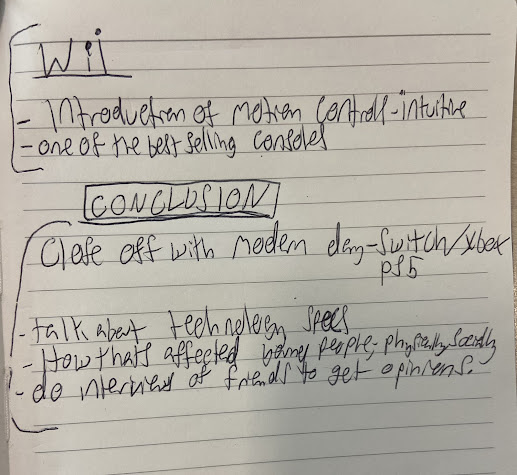 Wii
- Introduction of motion controls - intuitive
- one of the best selling consoles
CONCLUSION
Close off with modern day - Switch/xbox
PS5
- talk about technology specs
- How thats affected young people, physically/socially
- do interview of friends to get opinions.